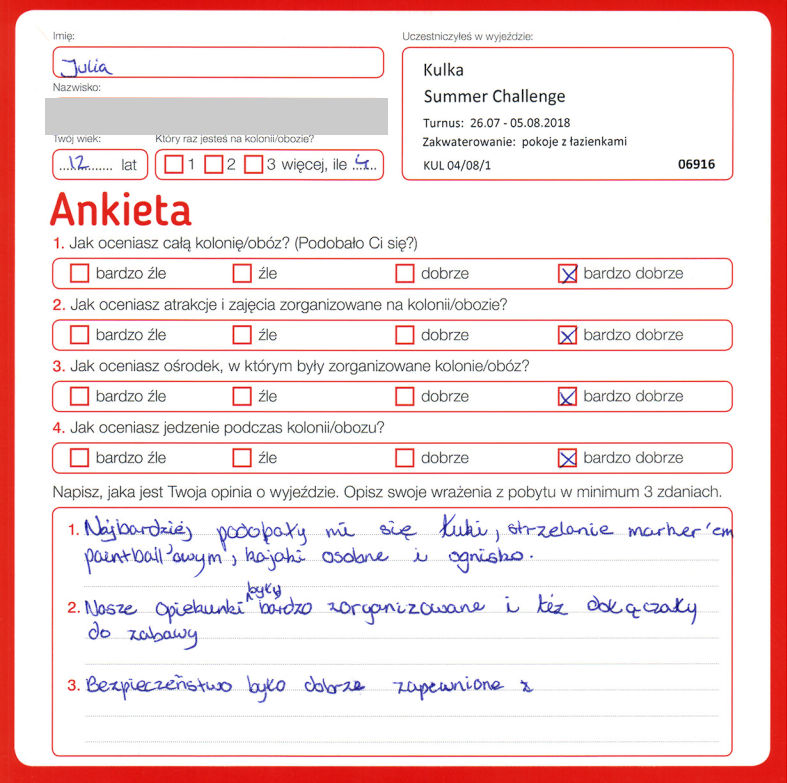 Imię:
Uczestniczyłeś w wyjeździe:
Julia
Kulka
Nazwisko:
Summer Challenge
Turnus: 26.07 - 05.08.2018
Twój wiek:
Który raz jesteś na kolonii/obozie?
Zakwaterowanie: pokoje z łazienkami
...12....... lat
1 2 3 więcej, ile 4
KUL 04/08/1 06916
Ankieta
1. Jak oceniasz całą kolonię/obóz? (Podobało Ci się?)
bardzo źle źle dobrze bardzo dobrze
2. Jak oceniasz atrakcje i zajęcia zorganizowane na kolonii/obozie?
bardzo źle źle dobrze bardzo dobrze
3. Jak oceniasz ośrodek, w którym były zorganizowane kolonie/obóz?
bardzo źle źle dobrze bardzo dobrze
4. Jak oceniasz jedzenie podczas kolonii/obozu?
bardzo źle źle dobrze bardzo dobrze
Napisz, jaka jest Twoja opinia o wyjeździe. Opisz swoje wrażenia z pobytu w minimum 3 zdaniach.
1. Najbardziej podobały mi się łuki, strzelanie marker'em
paintball'owym, kajaki osobne i ognisko.
2. Nasze opiekunki były bardzo zorganizowane i też dołączały
do zabawy
3. Bezpieczeństwo było dobrze zapewnione z